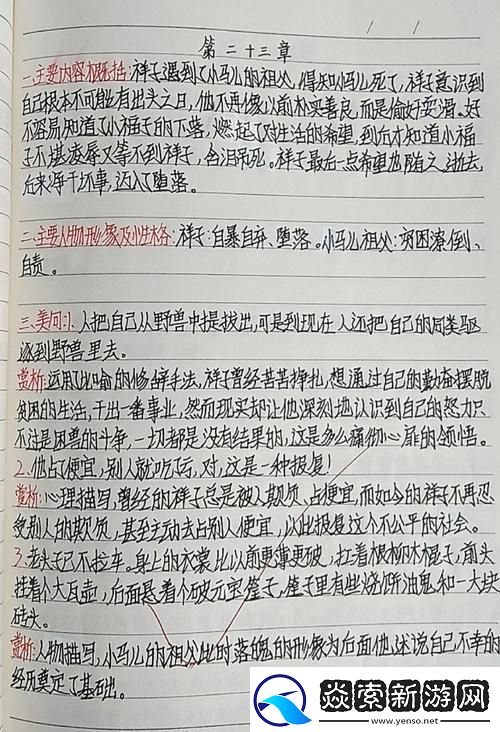 第二十三章
一、主要内容概括:祥子遇到了小马儿的祖父,得知小马儿死了,祥子意识到
自己根本不可能有出头之日,他不再像以前朴实善良,而是偷奸耍滑。好
不容易知道了小福子的下落,燃起了对生活的希望,到后才知道小福
子不堪凌辱又等不到祥子,含泪吊死。祥子最后一点希望也随之逝去,
后来净干坏事,迈入堕落。
二、主要人物形象及小性格:祥子:自暴自弃、堕落。小马儿祖父:穷困潦倒、
自责。
三、美句:1.人把自己从野兽中提拔出,可是到现在人还把自己的同类驱
逐到野兽里去。
赏析:运用了比喻的修辞手法,祥子曾经苦苦挣扎,想通过自己的勤奋摆脱
贫困的生活,干出一番事业,然而现实却让他深刻地认识到自己的努力只
不过是困兽的斗争,一切都是没有结果的,这是多么痛彻心扉的领悟。
2.他占了便宜,别人就吃亏,对,这是一种报复!
赏析:心理描写,曾经的祥子总是被人欺负、占便宜,而如今的祥子不再忍
受别人的欺负,甚至主动去占别人便宜,以此报复这个不公平的社会。
3.老头子已不拉车。身上的衣裳比以前更薄更破,扛着根柳木棍子,前头
挂着个大瓦壶,后面悬着个破元宝筐子,筐子里有些烧饼油鬼和一大块
砖头。
赏析:人物描写,小马儿的祖父此时落魄的形象为后面他述说自己不幸的
经历奠定了基础。
焱索新游网
www.yenso.net